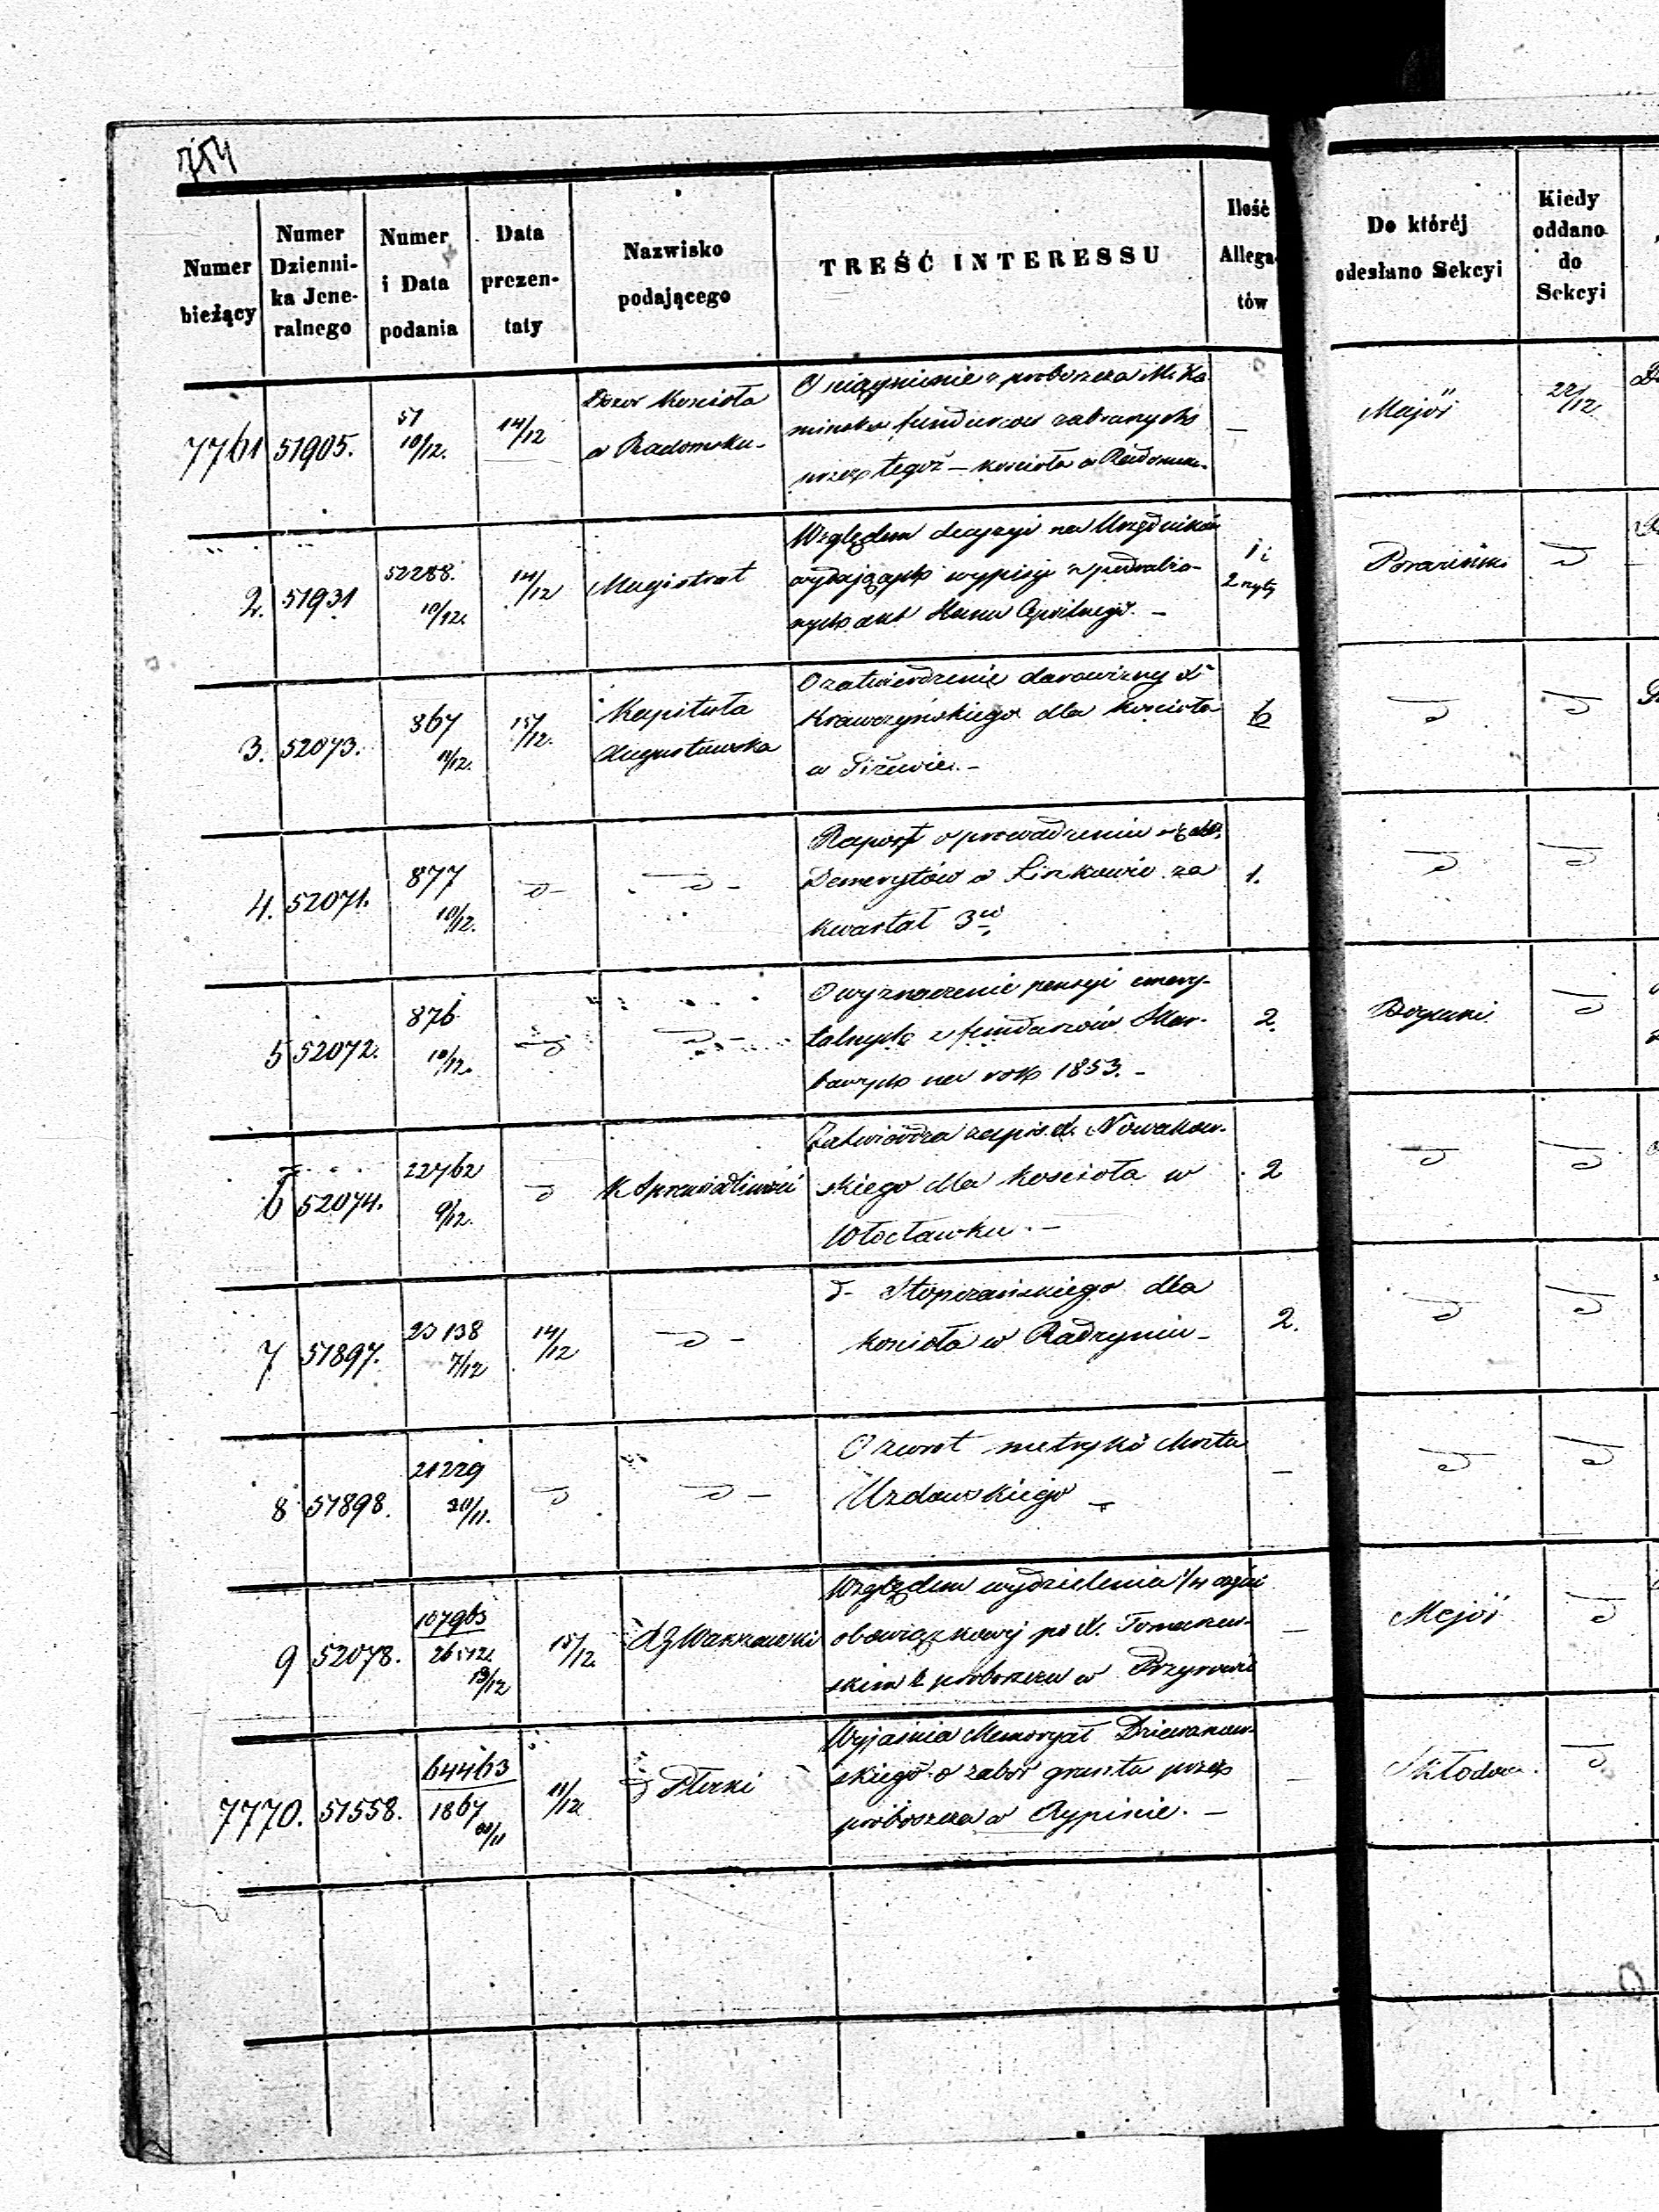 754
Numer bieżący
Numer Dziennika Jeneralnego
Numer i Data podania
Data prezentaty
Nazwisko podającego
TREŚĆ INTERESSU
Ilość Allegatów
Do któréj odesłano Sekcyi
Kiedy oddano do Sekcyi
7761 51905. 51 10/12. 14/12
Dozór Kościoła
w Radomsku
O ściągnienie z proboszcza M. Ka-
minsku funduszów zabranych
przez tegoż — kościoła w Radomsku
—
Majoi
22/12
2. 51931 52288. 10/12. 14/12 Magistrat
Względem decyzyi na Urzędników
wydających wypisy z podrabia-
nych akt Stanu Cywilnego. —
1 i
2
d
3. 52073. 867 11/12. 15/12.
Kapituła
Augustowska
O zatwierdzenie darowizny X
Krawczyńskiego dla kościoła
w
6
d
d
4. 52071. 877 10/12. d— d—
Raport o prowadzeniu się XX.
Demerytów w Liszkowie za
kwartał 3ci
1.
d
d
5 52072. 876 10/12. d d—
O wyznaczenie pensyi emery-
talnych z funduszów Skar-
bowych na rok 1853. —
2.
d
6 52074. 22762 9/12. d K Sprawiedliwości
Zatwierdza zapis d. Nowakow-
skiego dla kościoła w
Włocławku. —
2
d
d
7 51897. 23138 7/12 14/12 d—
d- Stopczańskiego dla
kościoła w Radzyniu —
2.
d
d
8 51898. 21229 20/11. d d—
O zwrot metryki
Uzdowskiego —
—
d
d
9 52078. 107963 26512. 13/12 15/12. Warszawski
Względem wydzielenia 1/4 części
obowiązkowej po X. Tomaszew-
skim proboszczu w Przyrowie
—
Mejoi
d
7770. 51558. 64463 1867 11/12 d Płocki
Wyjaśnia Memoryał Dziewanow-
skiego o zabór gruntu przez
proboszcza w Rypinie. —
—
d